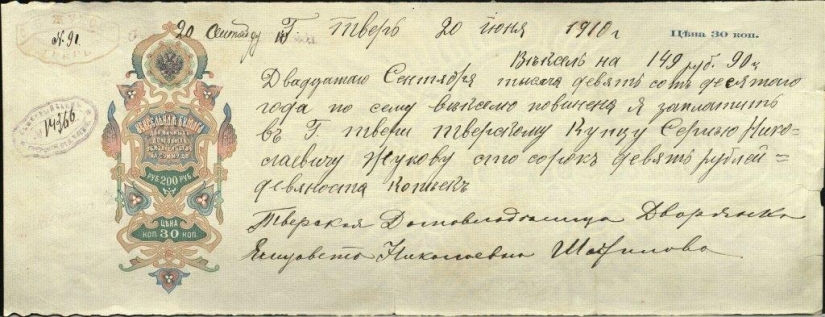 № 91
20 Сентября
Г. Тверь 20 июня 1910 г
Цѣна 30 коп.
Вѣксель на 149 руб. 90 к
Двадцатаго Сентября тысяча девять сотъ десятого
года по сему векселю повинена я заплатить
въ Г. твери тверскому Купцу Сергѣю Нико-
лаевичу Жукову сто сорокъ девять рублей =
девяноста Копѣекъ
Тверская Домовладѣлица Дворянка
Елизавета Николаевна
14366
ВЕКСЕЛЬНАЯ БУМАГА
РУБ 200 РУБ
ЦѢНА
КОП 30 КОП